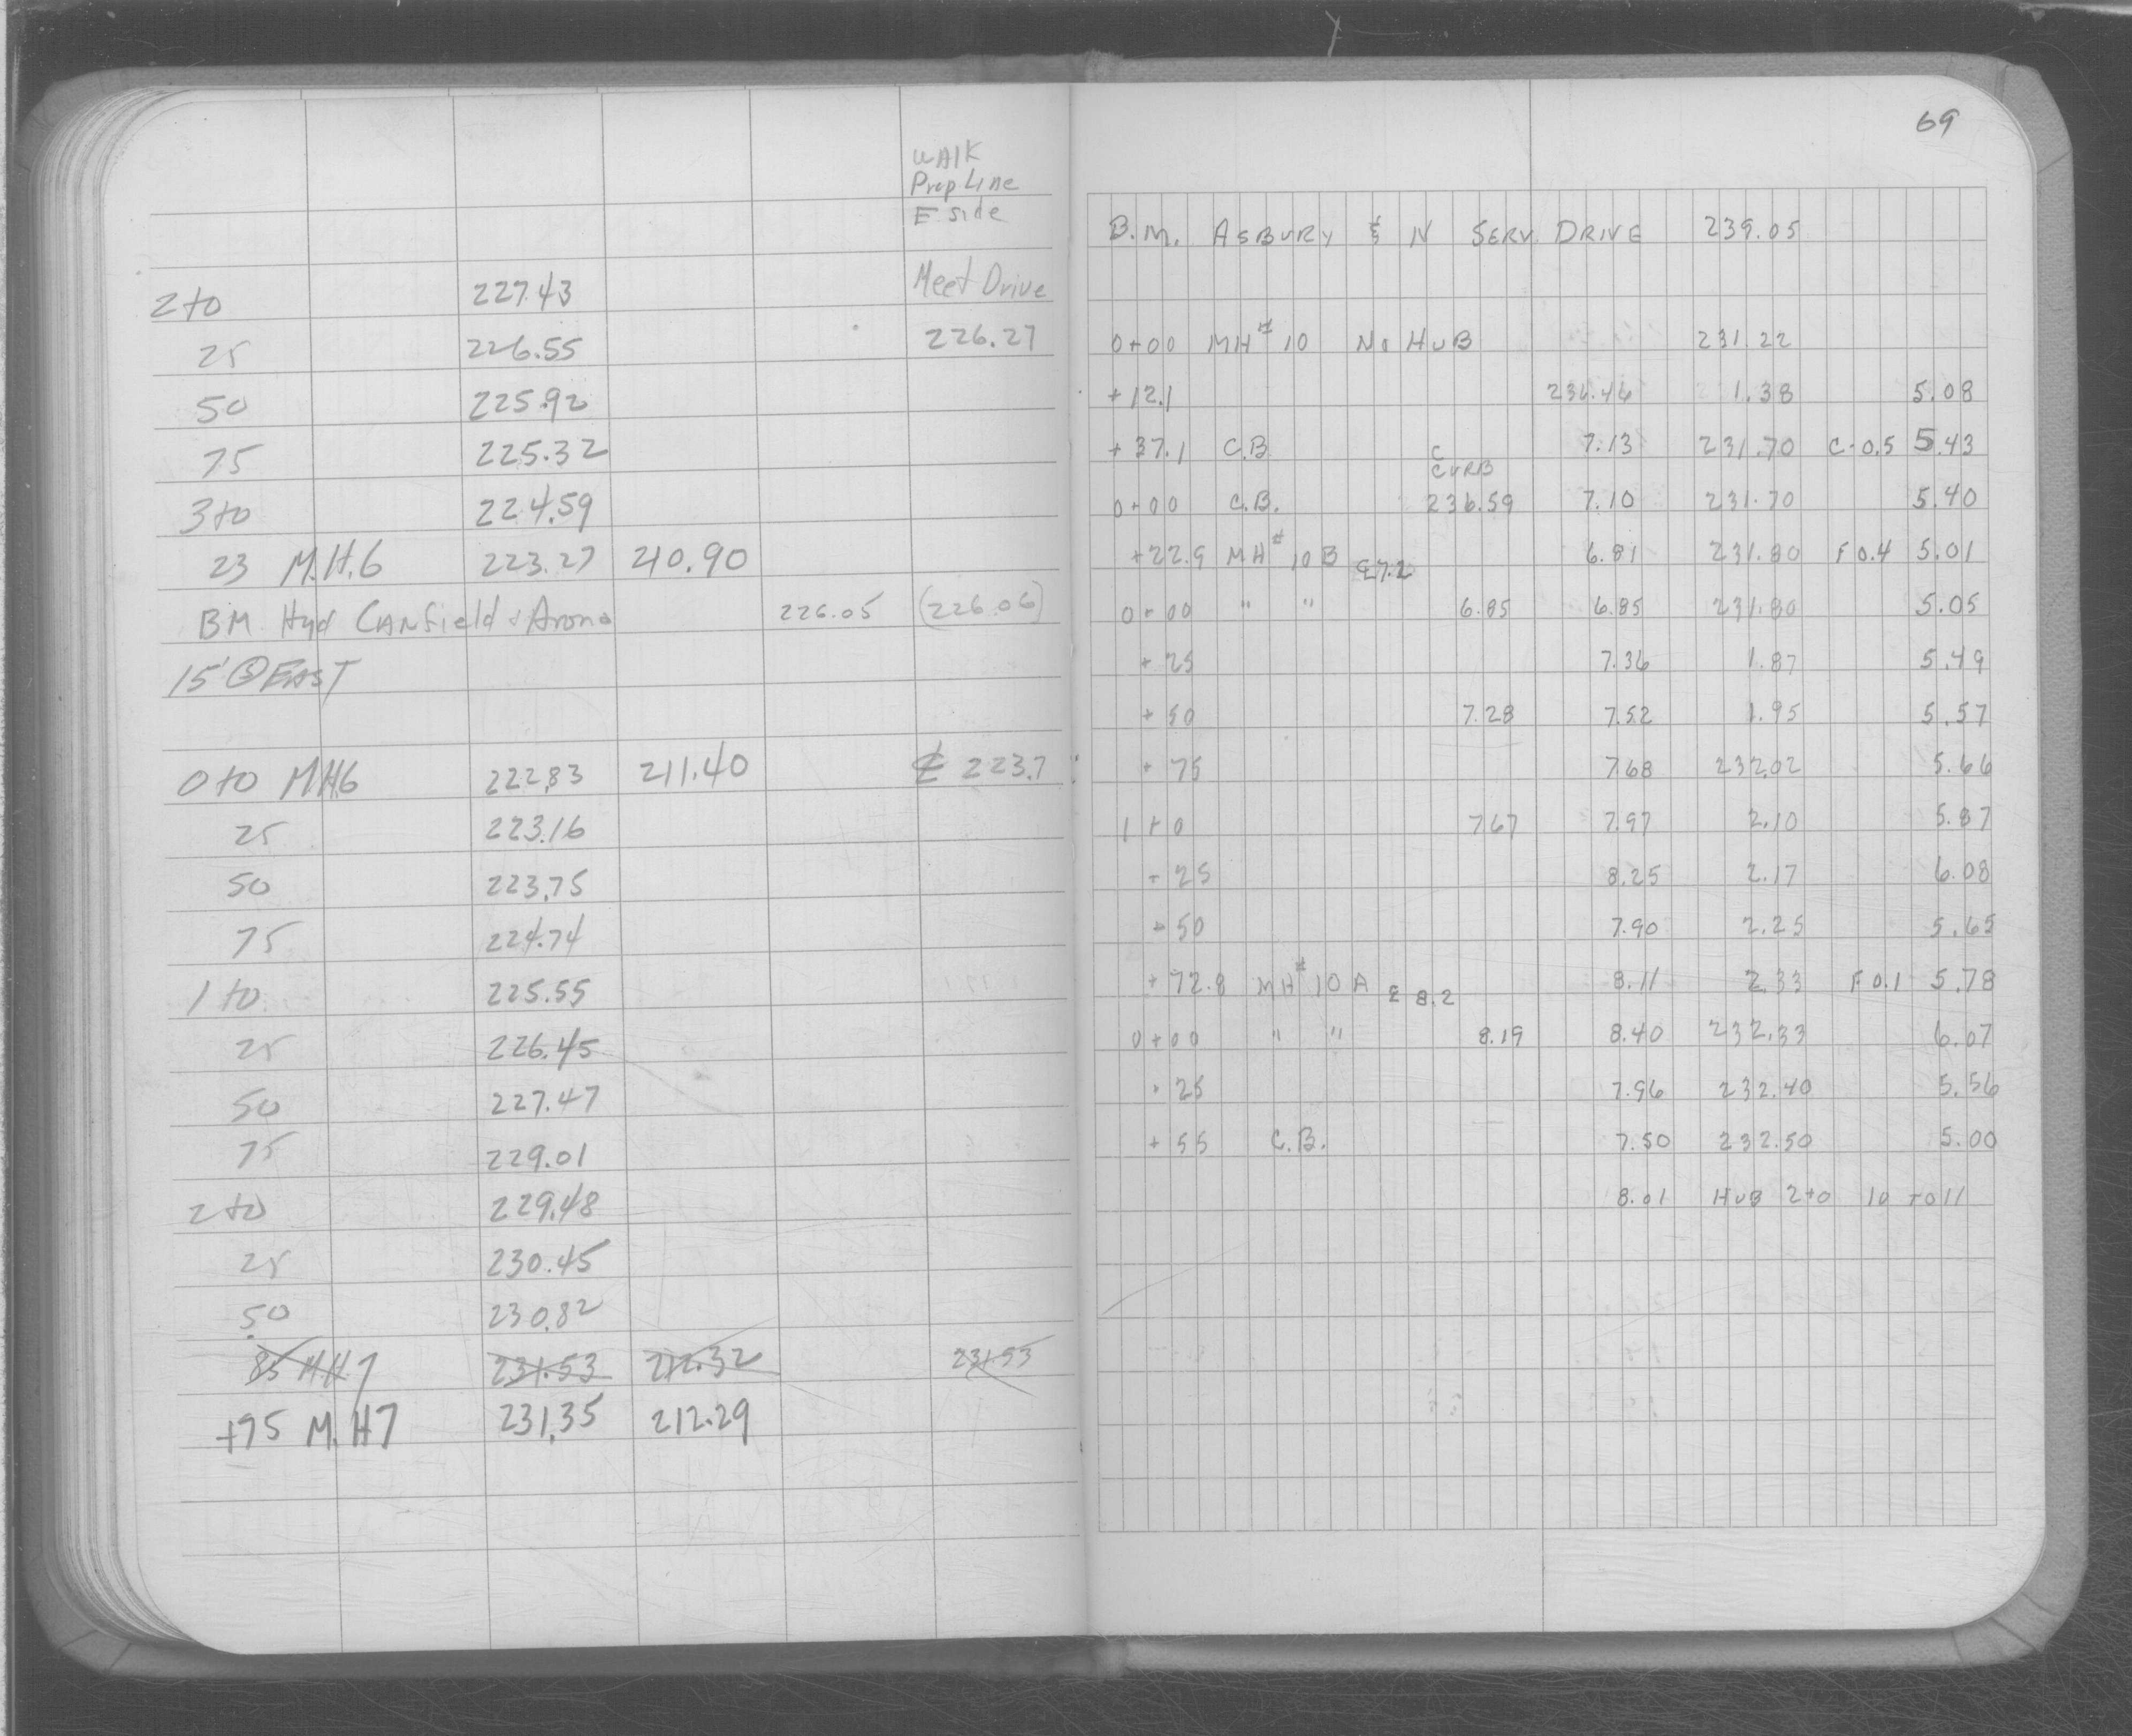 WALK
Prop Line
E side
2+0 227.43 Meet Drive
25 226.55 226.27
50 225.92
75 225.32
3+0 224.59
23 M.H.6 223.27 210.90
BM Hyd CANfield & Arona 226.05 (226.06)
15' @ EAST
0+0 M.H.6 222.83 211.40 ℄ 223.7
25 223.16
50 223.75
75 224.74
1+0 225.55
25 226.45
50 227.47
75 229.01
2+0 229.48
25 230.45
50 230.82
85 M.H.7 231.53 212.32 231.53
+95 M.H7 231.35 212.29
69
B.M. ASBURY & N SERV. DRIVE 239.05
0+00 MH# 10 No HUB 231.22
+12.1 236.46 1.38 5.08
+37.1 C.B. 7.13 231.70 C-0.5 5.43
C CURB
0+00 C.B. 236.59 7.10 231.70 5.40
+22.9 MH# 10B ℄ 7.2 6.81 231.80 F 0.4 5.01
0+00 " " 6.85 6.85 231.80 5.05
+25 7.36 1.87 5.49
+50 7.28 7.52 1.95 5.57
+75 7.68 232.02 5.66
1+0 7.67 7.97 2.10 5.87
+25 8.25 2.17 6.08
+50 7.90 2.25 5.65
+72.8 MH# 10A ℄ 8.2 8.11 2.33 F 0.1 5.78
0+00 " " 8.19 8.40 232.33 6.07
+25 7.96 232.40 5.56
+55 C.B. 7.50 232.50 5.00
8.01 HUB 2+0 10 TO 11